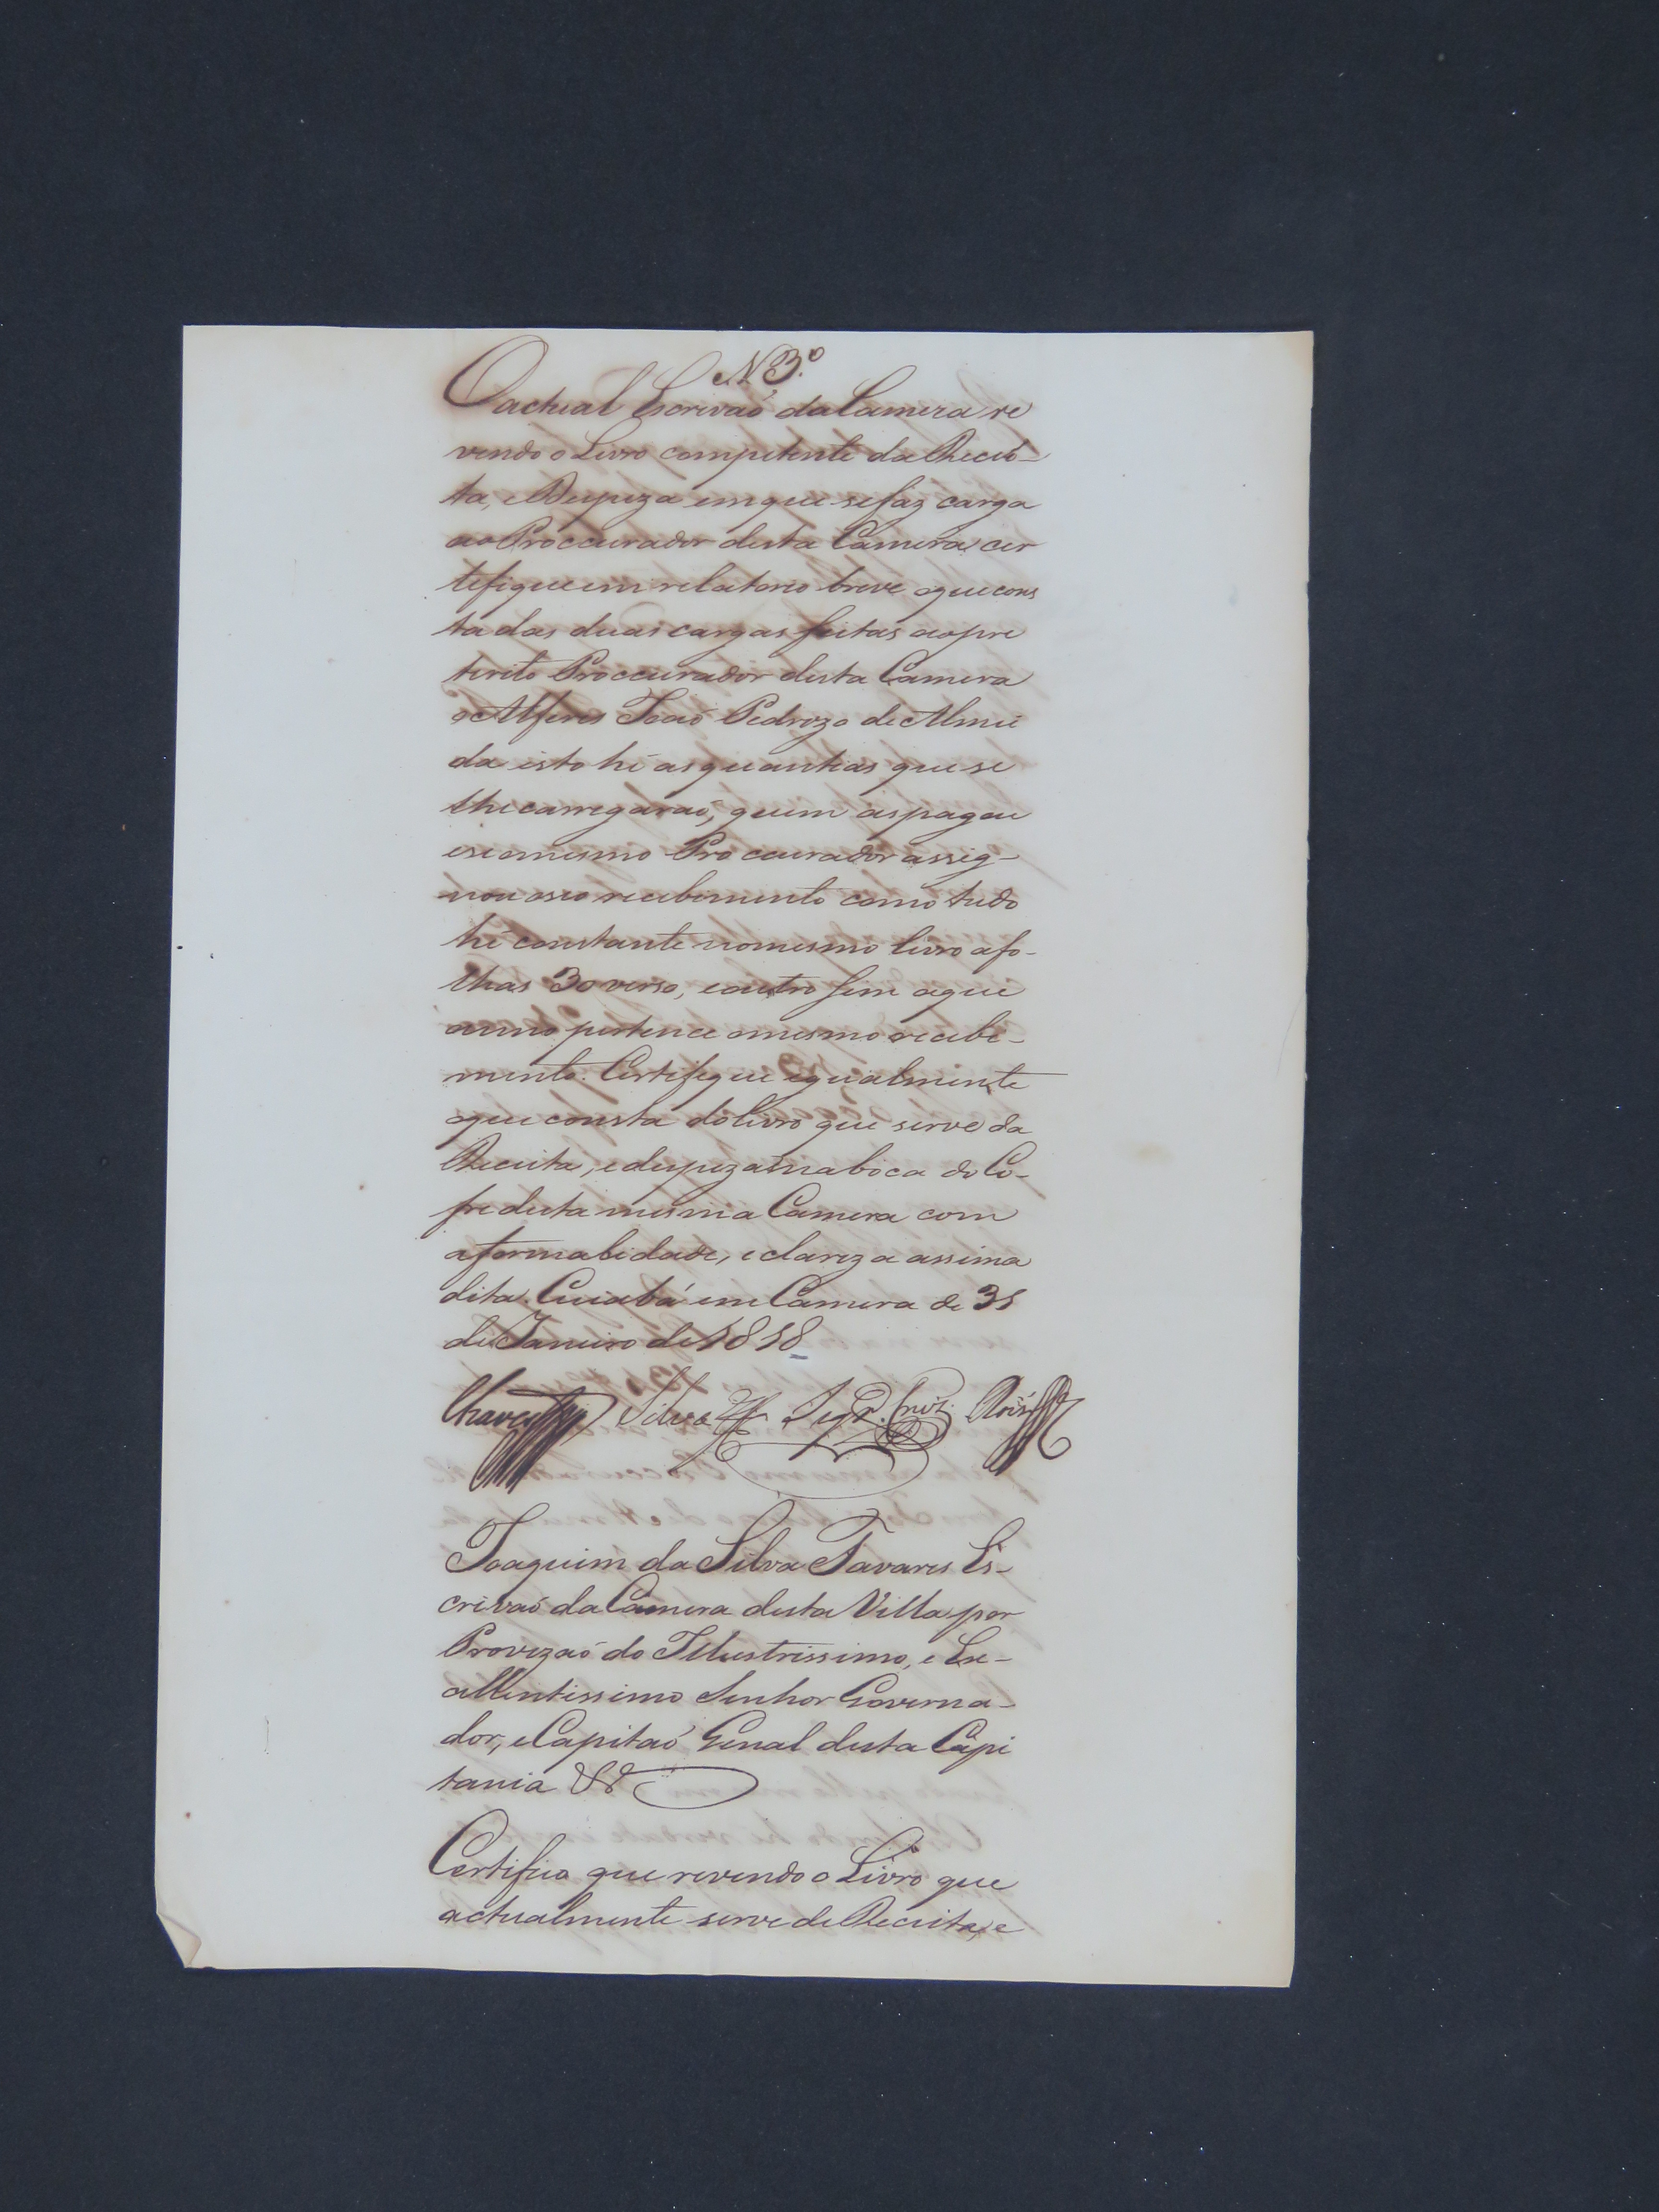 N 3.º
O actual Escrivaõ da Camera re
vendo o Livro competente da Recei-
ta, e Despeza em que se faz carga
ao Proccurador desta Camera cer
tefique em relatorio breve o que cons
ta das duas cargas feitas ao pre
terito Proccurador desta Camera
o Alferes Joaõ Pedrozo de Almei
da isto hé as quantias que se
lhe carregaraõ, quem as pagou
e se o mesmo Proccurador assig-
nou o seo recebimento como tudo
hé constante no mesmo livro a fo-
lhas 30 verso, e outro sim a que
anno pertence o mesmo recebi-
mento. Certifique egualmente
o que consta do livro que serve da
Receita, e despeza na boca do Co-
fre desta mesma Camera com
a formalidade, e clareza assima
dita. Cuiabá em Camera de 31
de Janeiro de 1818
Chaves Silva Roiz
Joaquim da Silva Tavares Es-
crivaõ da Camera desta Villa por
Provizaõ do Illustrissimo, e Ex-
cellentissimo Senhor Governa-
dor, e Capitaõ Genal desta Capi
tania &ª
Certifico que revendo o Livro que
actualmente serve de Receita, e